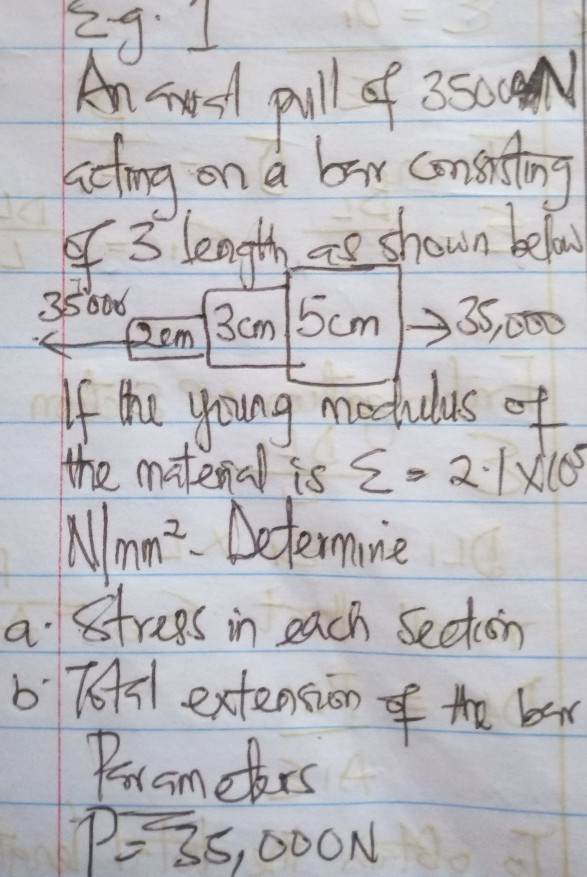 E.g. 1
An axial pull of 35000N
acting on a bar consisting
of 3 length as shown below
35000
2cm 3cm 5cm 35,000
If the young modulus of
the material is Σ = 2.1 X 10⁵
N/mm². Determine
a. Stress in each section
b. Total extension of the bar
Parameters
P = 35,000N